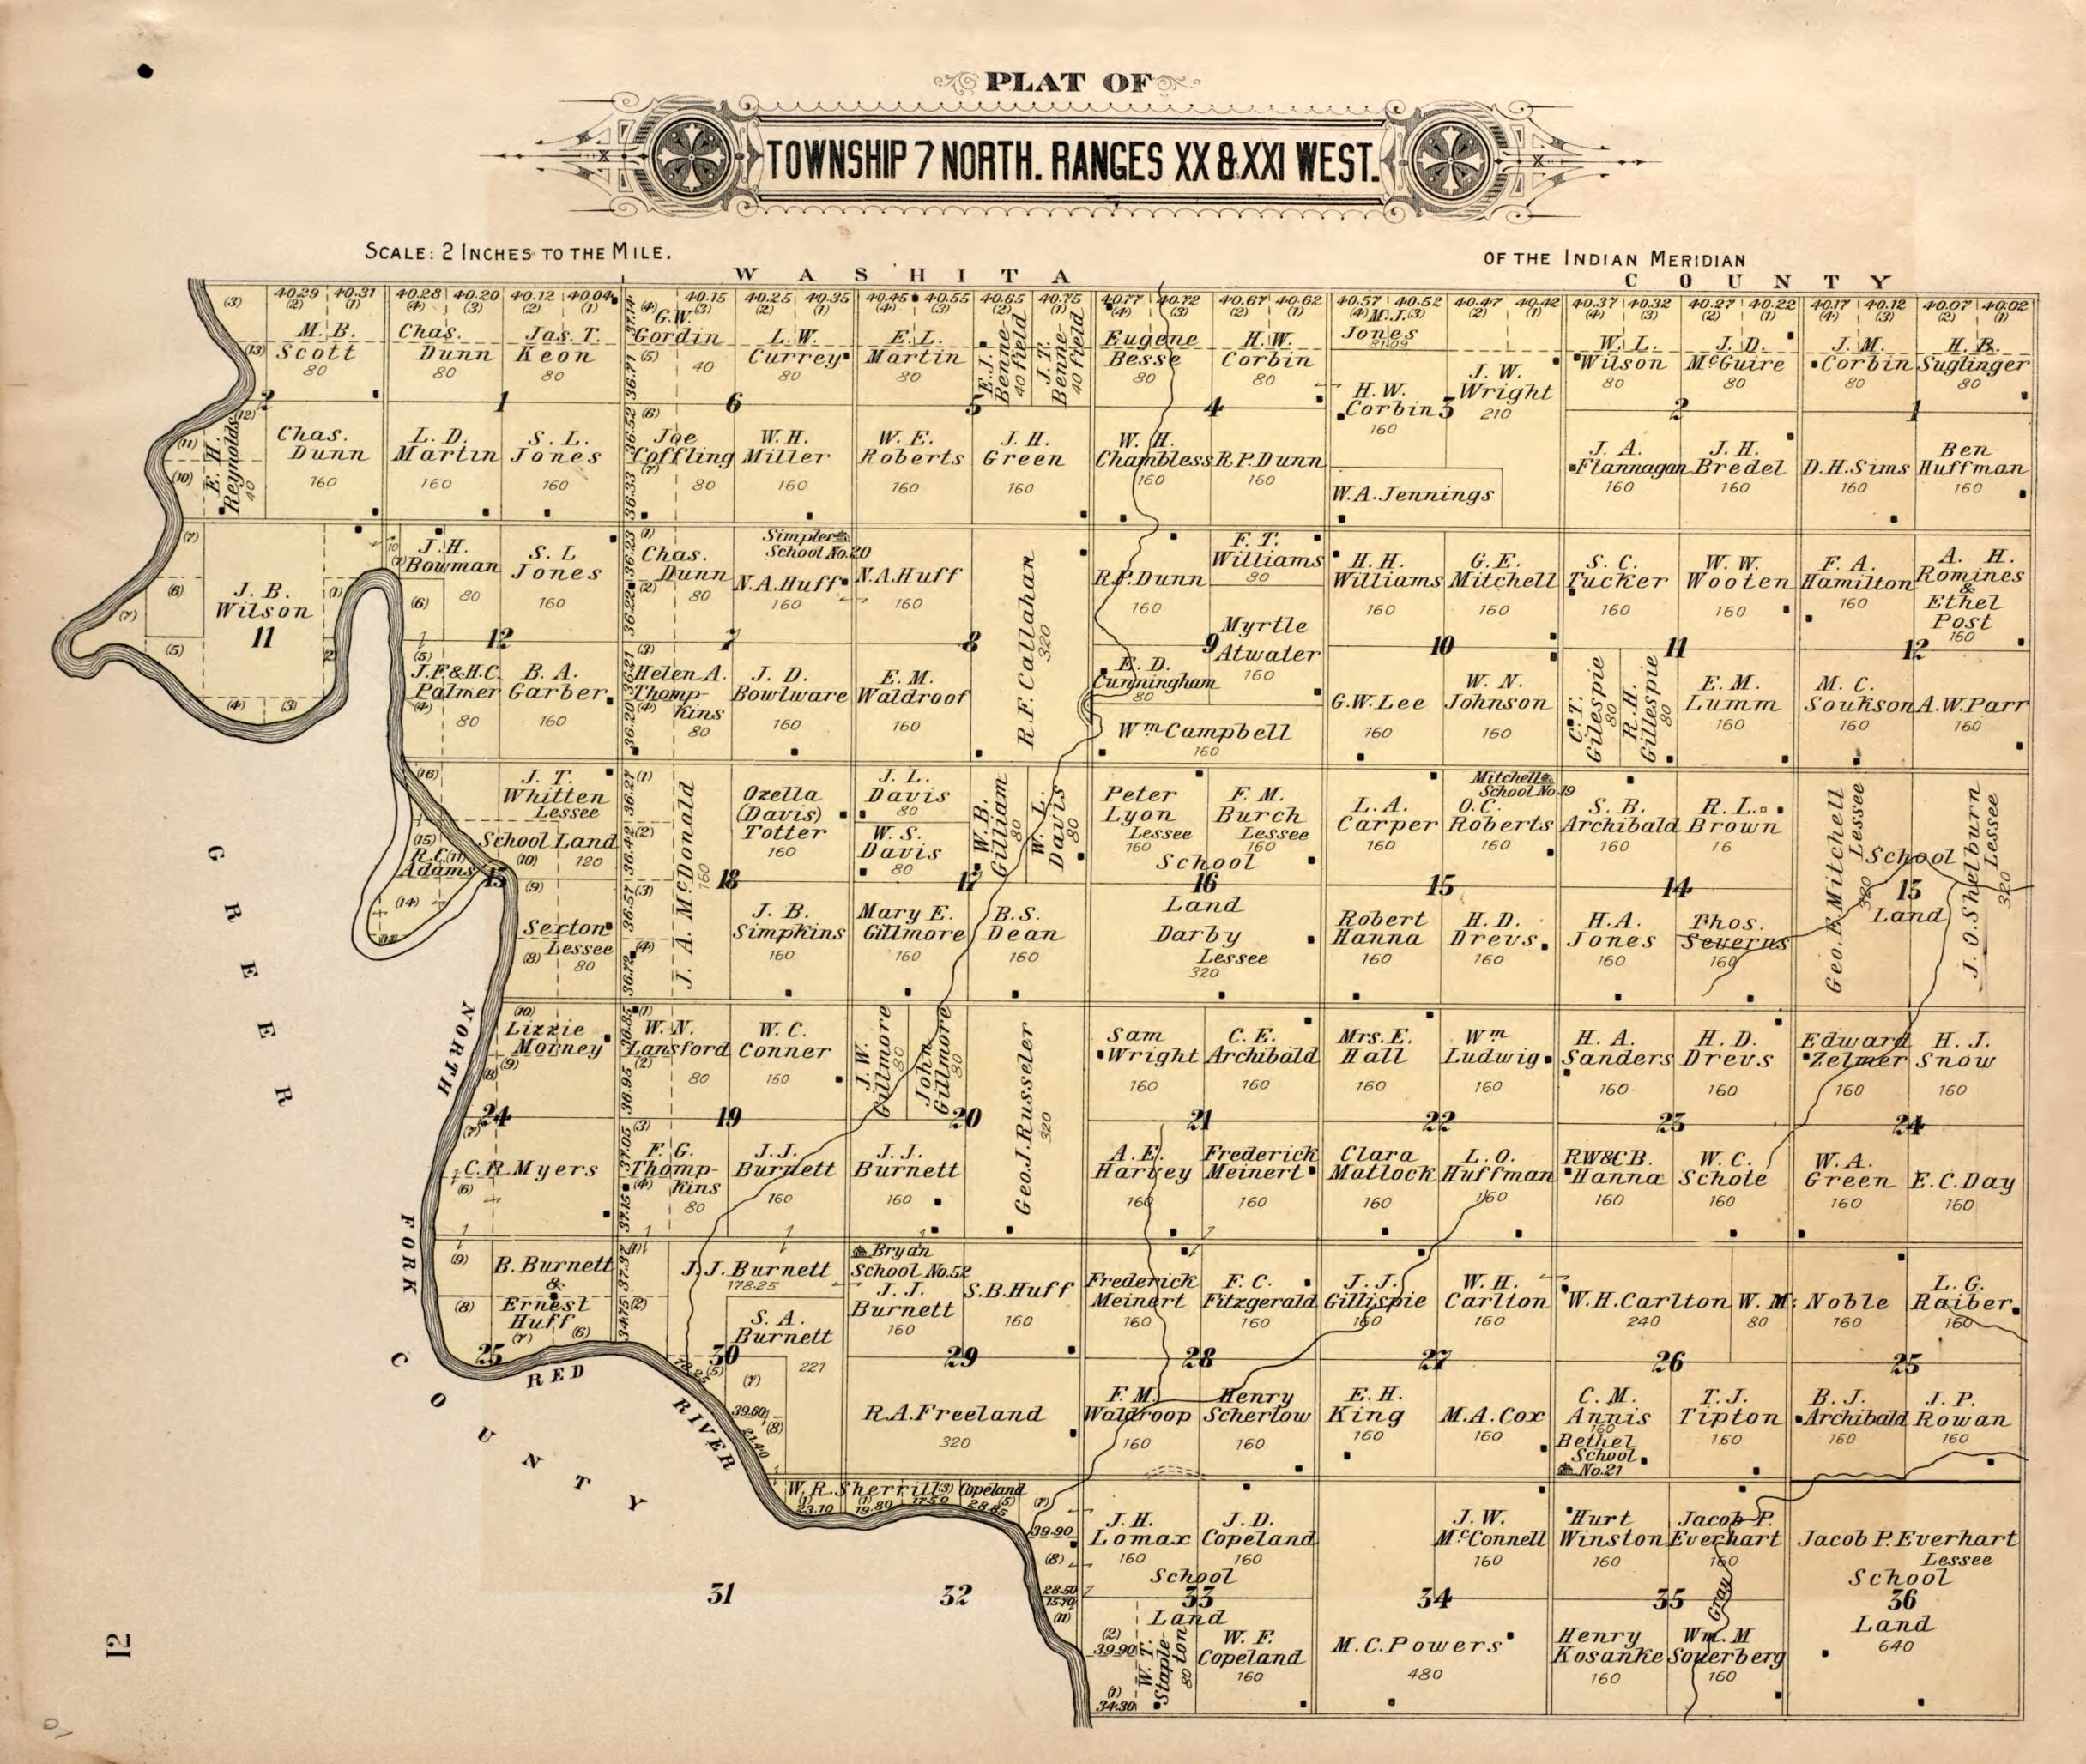 PLAT OF
TOWNSHIP 7 NORTH. RANGES XX & XXI WEST.
SCALE: 2 INCHES TO THE MILE.
OF THE INDIAN MERIDIAN
WASHITA COUNTY
(3)
40.29 40.31 40.28 40.20 40.12 40.04 40.15 40.25 40.35 40.45 40.55 40.65 40.75 40.77 40.72 40.67 40.62 40.57 40.52 40.47 40.42 40.37 40.32 40.27 40.22 40.17 40.12 40.07 40.02
(2) (1) (4) (3) (2) (1) (4) (3) (2) (1) (4) (3) (2) (1) (4) (3) (2) (1) (4) (3) (2) (1) (4) (3) (2) (1) (4) (3) (2) (1)
M. B.
Scott
80
Chas.
Dunn
80
Jas. T.
Keon
80
G.W.
Gordin
40
L.W.
Currey
80
E.L.
Martin
80
E.J.
Benne-
field
40
J.T.
Benne-
field
40
Eugene
Besse
80
H.W.
Corbin
80
M.J.
Jones
81.09
H.W.
Corbin
160
J. W.
Wright
210
W. L.
Wilson
80
J. D.
McGuire
80
J. M.
Corbin
80
H. B.
Suglinger
80
2 1 6 5 4 3 2 1
E. H.
Reynolds
40
Chas.
Dunn
160
L. D.
Martin
160
S. L.
Jones
160
Joe
Coffling
80
W. H.
Miller
160
W. E.
Roberts
160
J. H.
Green
160
W. H.
Chambless
160
R.P. Dunn
160
W.A. Jennings
J. A.
Flannagan
160
J. H.
Bredel
160
D.H. Sims
160
Ben
Huffman
160
J. B.
Wilson
11
J. H.
Bowman
80
S. L
Jones
160
Chas.
Dunn
80
Simpler
School No. 20
N.A. Huff
160
N.A. Huff
160
R.F. Callahan
320
R.P. Dunn
160
F. T.
Williams
80
H. H.
Williams
160
G. E.
Mitchell
160
S. C.
Tucker
160
W. W.
Wooten
160
F. A.
Hamilton
160
A. H.
Romines
&
Ethel
Post
160
12 7 8 9 10 11 12
J.F. & H.C.
Palmer
80
B. A.
Garber
160
Helen A.
Thomp-
kins
80
J. D.
Bowlware
160
E. M.
Waldroof
160
E. D.
Cunningham
80
Myrtle
Atwater
160
Wm Campbell
160
G.W. Lee
160
W. N.
Johnson
160
C. T.
Gilespie
80
R. H.
Gillespie
80
E. M.
Lumm
160
M. C.
Soukson
160
A.W. Parr
160
J. T.
Whitten
Lessee
School Land
120
R.C.
Adams
13
Sexton
Lessee
80
J. A. McDonald
160
Ozella
(Davis)
Totter
160
J. L.
Davis
80
W. S.
Davis
80
W. B.
Gilliam
80
W. L.
Davis
80
Peter
Lyon
Lessee
160
F. M.
Burch
Lessee
160
School
16
Land
Darby
Lessee
320
L. A.
Carper
160
Mitchell
School No. 19
O.C.
Roberts
160
S. B.
Archibald
160
R. L.
Brown
16
Geo. E. Mitchell
Lessee
320
School
13
Land
J. O. Shelburn
Lessee
320
18 17 15 14
J. B.
Simpkins
160
Mary E.
Gillmore
160
B. S.
Dean
160
Robert
Hanna
160
H. D.
Drevs
160
H.A.
Jones
160
Thos.
Severns
160
Lizzie
Morney
W. N.
Lansford
80
W. C.
Conner
160
J. W.
Gillmore
80
John
Gillmore
80
Geo. J. Russeler
320
Sam
Wright
160
C. E.
Archibald
160
Mrs. E.
Hall
160
Wm
Ludwig
160
H. A.
Sanders
160
H. D.
Drevs
160
Edward
Zelmer
160
H. J.
Snow
160
24 19 20 21 22 23 24
C.R. Myers
F. G.
Thomp-
kins
80
J. J.
Burnett
160
J. J.
Burnett
160
A. E.
Harvey
160
Frederick
Meinert
160
Clara
Matlock
160
L. O.
Huffman
160
RW & CB.
Hanna
160
W. C.
Schote
160
W. A.
Green
160
E.C. Day
160
B. Burnett
&
Ernest
Huff
J. J. Burnett
178.25
S. A.
Burnett
221
Bryan
School No. 52
J. J.
Burnett
160
S.B. Huff
160
Frederick
Meinert
160
F. C.
Fitzgerald
160
J. J.
Gillispie
160
W. H.
Carlton
160
W.H. Carlton
240
W. M.
80
Noble
160
L. G.
Raiber
160
25 30 29 28 27 26 25
R.A. Freeland
320
F. M.
Waldroop
160
Henry
Scherlow
160
E. H.
King
160
M.A. Cox
160
C. M.
Annis
160
Bethel
School
No. 21
T. J.
Tipton
160
B. J.
Archibald
160
J. P.
Rowan
160
W. R. Sherrill
Copeland
23.10 19.80 17.50 28.85
39.90
28.50
15.70
J. H.
Lomax
160
J. D.
Copeland
160
School
33
Land
J. W.
McConnell
160
Hurt
Winston
160
Jacob P.
Everhart
160
Jacob P. Everhart
Lessee
School
36
Land
640
31 32 34 35
39.90
34.30
W. T.
Staple-
ton
80
W. F.
Copeland
160
M. C. Powers
480
Henry
Kosanke
160
Wm. M
Souerberg
160
Gray
GREER
COUNTY
NORTH
FORK
RED
RIVER
12